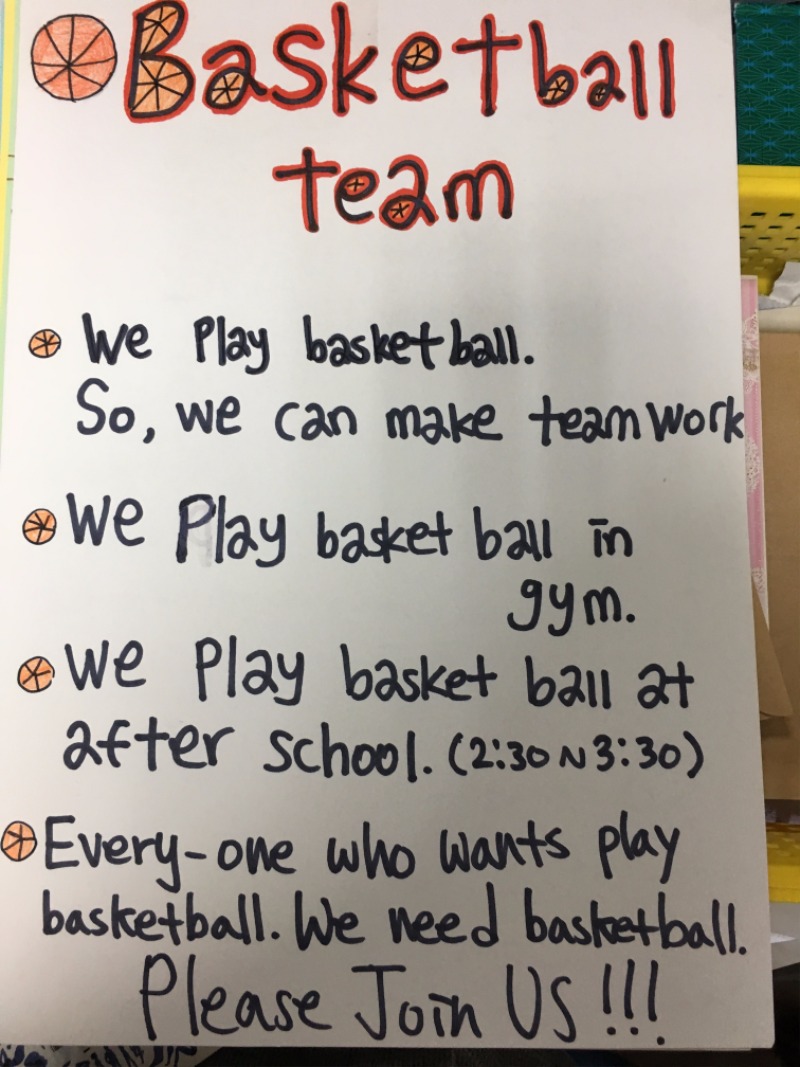 Basketball
team
We Play basketball.
So, we can make teamwork
We Play basket ball in
gym.
We Play basket ball at
after school. (2:30 ~ 3:30)
Every-one who wants play
basketball. We need basketball.
Please Join US !!!